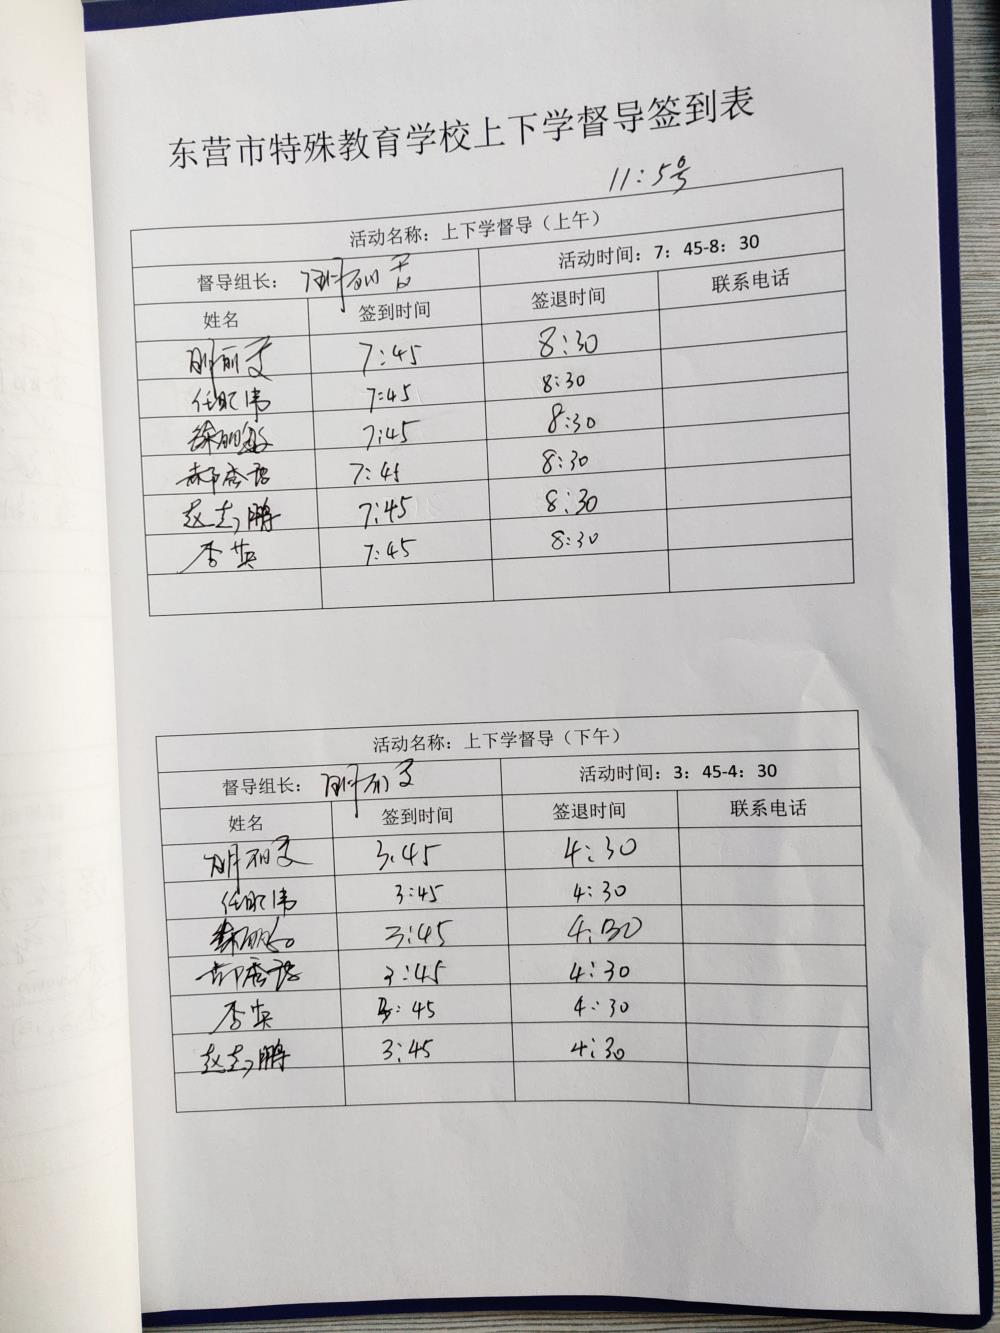 东营市特殊教育学校上下学督导签到表
11:5号
活动名称：上下学督导（上午）
督导组长： 活动时间：7：45-8：30
姓名 签到时间 签退时间 联系电话
7:45 8:30
任 伟 7:45 8:30
7:45 8:30
7:45 8:30
赵志鹏 7:45 8:30
李英 7:45 8:30
活动名称：上下学督导（下午）
督导组长： 活动时间：3：45-4：30
姓名 签到时间 签退时间 联系电话
3:45 4:30
任 伟 3:45 4:30
3:45 4:30
3:45 4:30
李英 3:45 4:30
赵志鹏 3:45 4:30